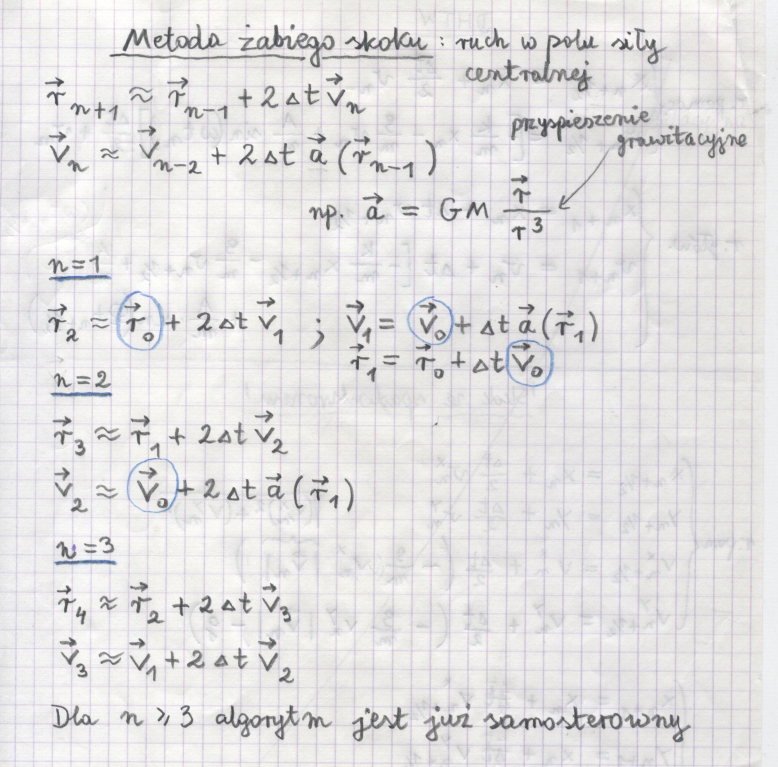 Metoda żabiego skoku : ruch w polu siły
centralnej
r⃗ₙ₊₁ ≈ r⃗ₙ₋₁ + 2 Δt v⃗ₙ
przyspieszenie
grawitacyjne
v⃗ₙ ≈ v⃗ₙ₋₂ + 2 Δt a⃗ (r⃗ₙ₋₁)
np. a⃗ = GM r⃗/r³
n=1
r⃗₂ ≈ r⃗₀ + 2 Δt v⃗₁ ; v⃗₁ = v⃗₀ + Δt a⃗ (r⃗₁)
r⃗₁ = r⃗₀ + Δt v⃗₀
n=2
r⃗₃ ≈ r⃗₁ + 2 Δt v⃗₂
v⃗₂ ≈ v⃗₀ + 2 Δt a⃗ (r⃗₁)
n=3
r⃗₄ ≈ r⃗₂ + 2 Δt v⃗₃
v⃗₃ ≈ v⃗₁ + 2 Δt v⃗₂
Dla n ⩾ 3 algorytm jest już samosterowny